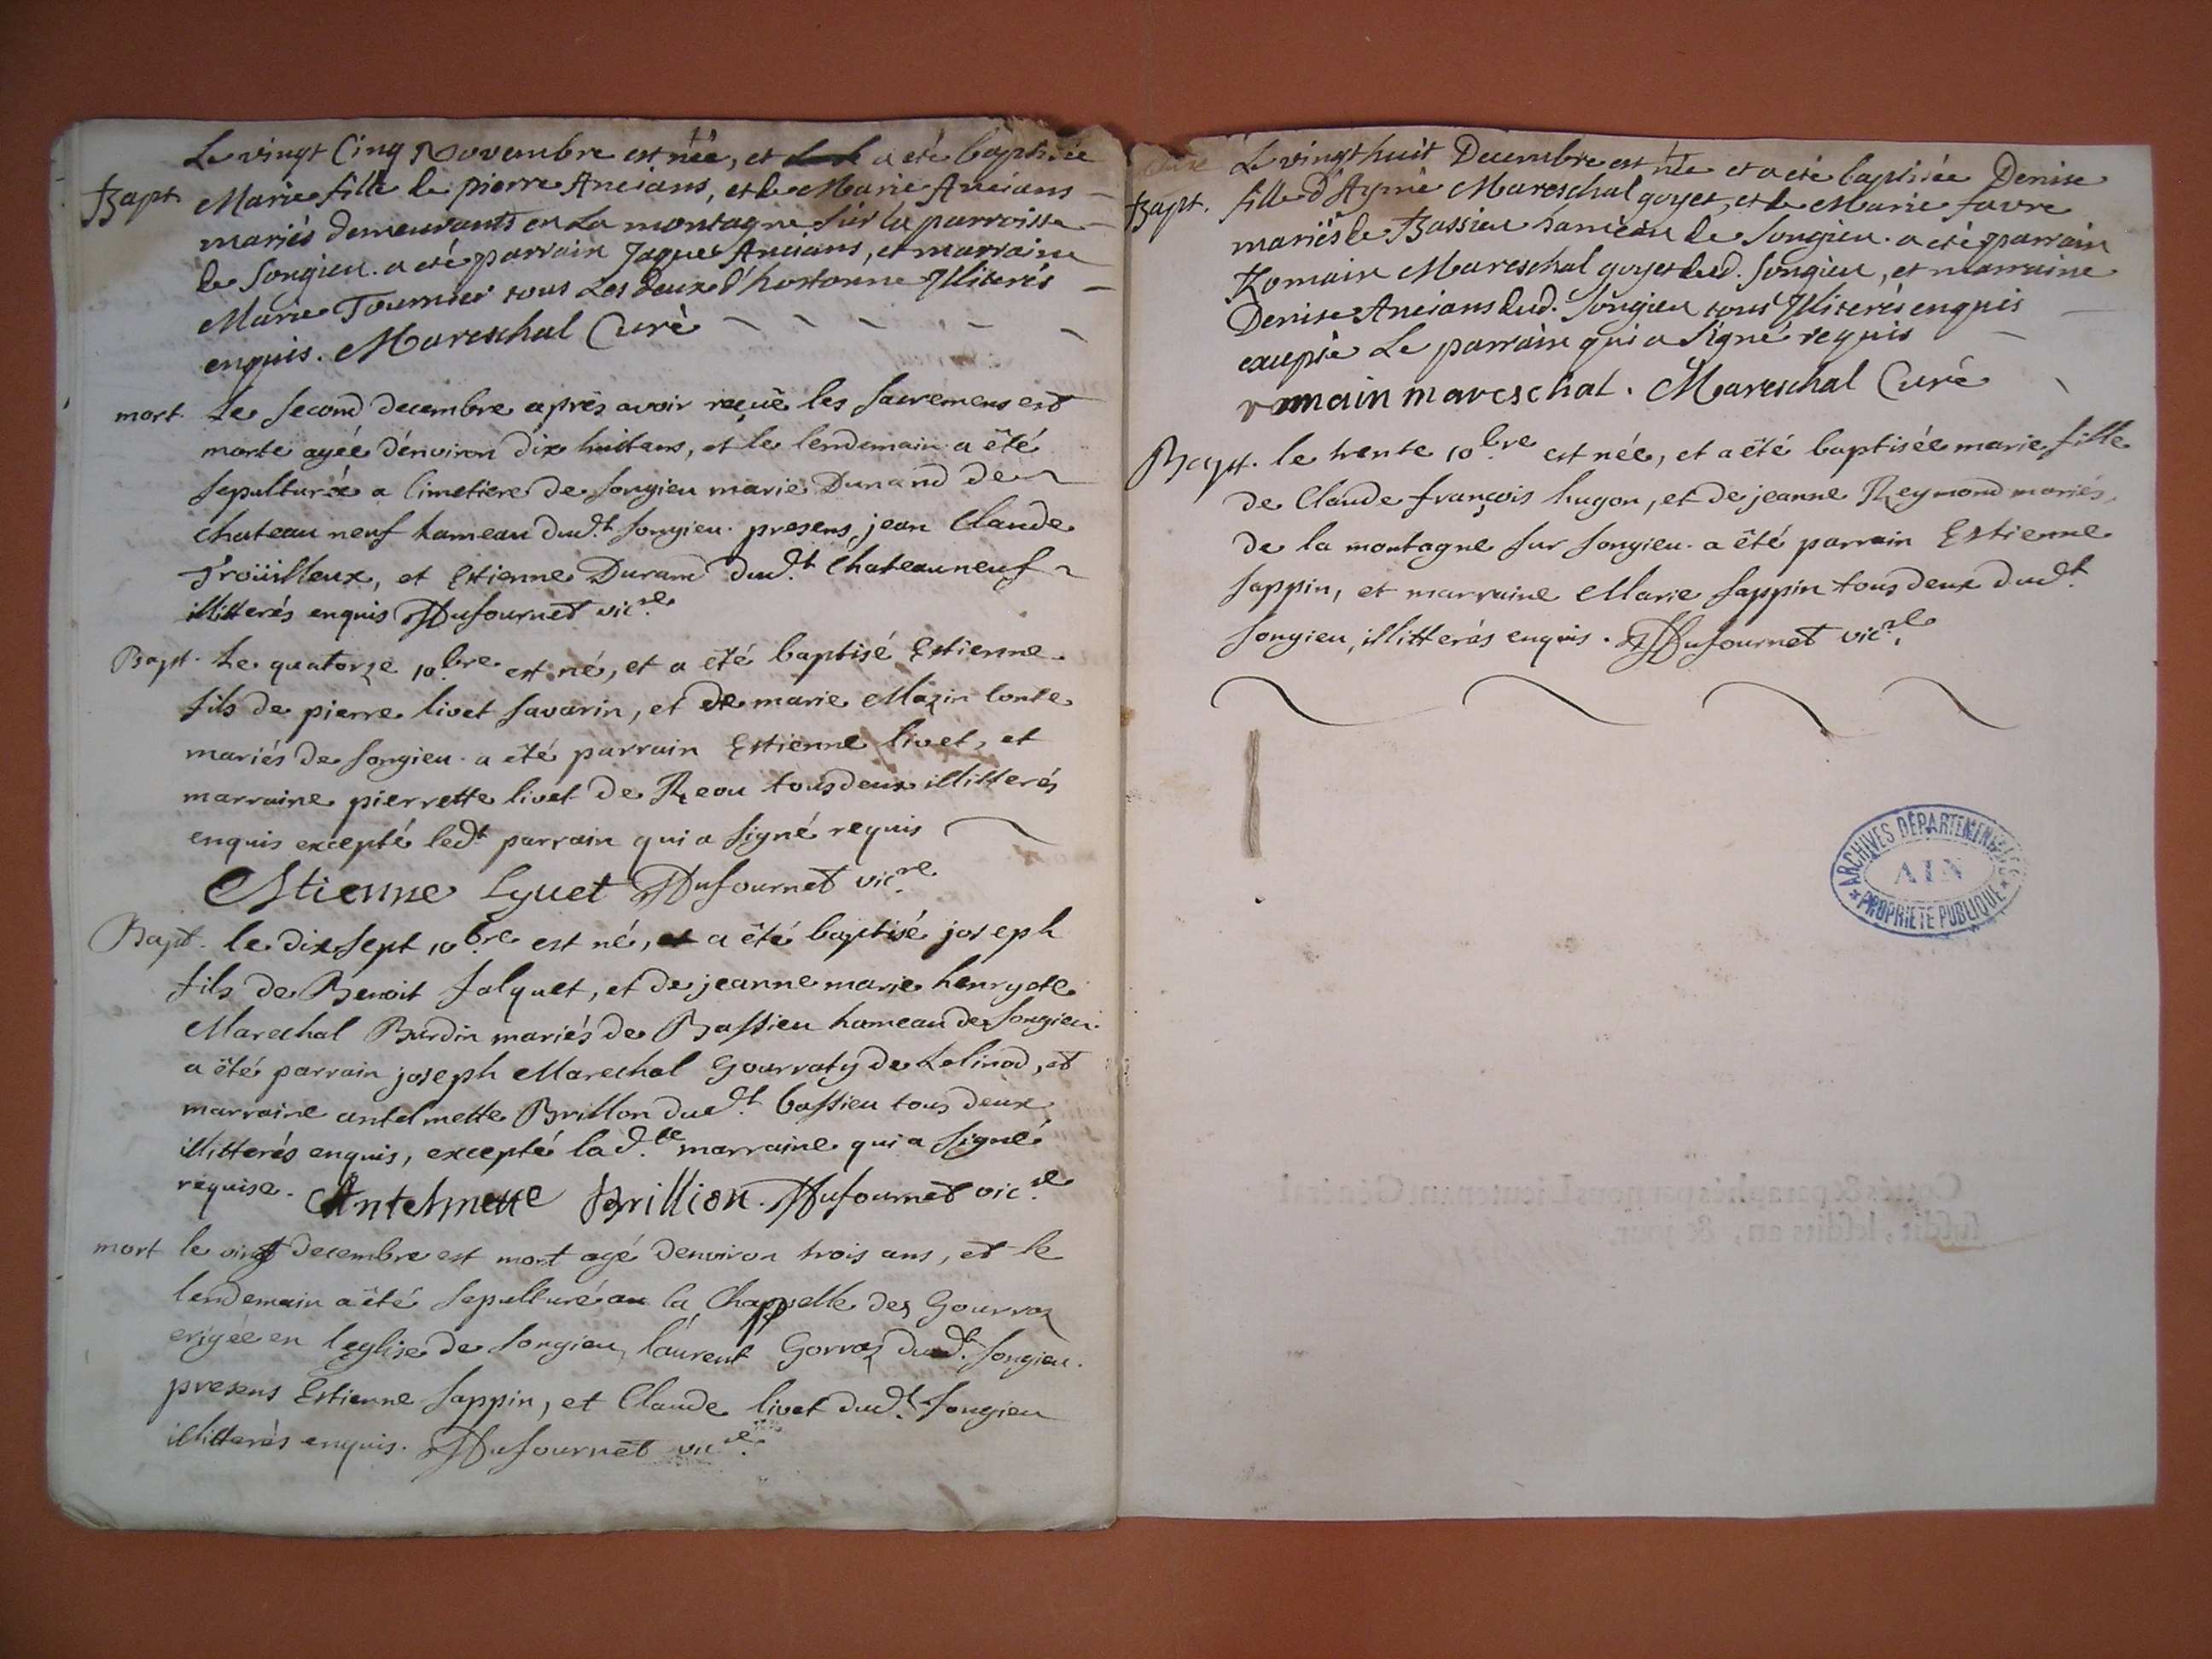 Le vingt Cinq Novembre est née, et a eté baptisée
Bapt. Marie fille de pierre Ancians, et de Marie Ancians
mariés demeurants en La montagne sur la parroisse
de Songieu. a eté parrain Jaque Ancians, et marraine
Marie Tournier tous Les deux d'hostonne Illiterés
enquis. Mareschal Curé
mort. Le second decembre aprés avoir reçuë les sacremens est
morte agée d'environ dix huit ans, et le lendemain a été
sepulturée a Cimetiere de songieu marie Durand de
chateau neuf hameau dud.t songieu. presens jean Claude
Troüilleux, et Estienne Durand dud.t Chateauneuf
illitterés enquis Dufournet vic.re
Bapt. Le quatorze 10.bre est né, et a été baptisé Estienne
fils de pierre livet savarin, et de marie Mazin conte
mariés de songieu. a été parrain Estienne livet, et
marraine pierrette livet de Reou tous deux illitterés
enquis excepté led.t parrain qui a signé requis
Estienne Lyuet Dufournet vic.re
Bapt. le dix sept 10.bre est né, et a été baptisé joseph
fils de Benoit falquet, et de jeanne marie henryete
Marechal Burdin mariés de Bassieu hameau de songieu.
a été parrain joseph Marechal Gourraty de Lelinod, et
marraine antelmette Brillon dud.t bassieu tous deux
illitterés enquis, excepté lad.te marraine qui a signé
requise. Antelmette Brillion. Dufournet vic.re
mort le vingt decembre est mort agé denviron trois ans, et le
lendemain a été sepulturé au la Chappelle des Gourraz
erigée en leglise de songieu, laurent Gorraz dud.t songieu.
presens Estienne sappin, et Claude livet dud.t songieu
illitterés enquis. Dufournet vic.re
Le vingt huit Decembre est née et a eté baptisée Denise
Bapt. fille d'Aymé Mareschal goyet, et de Marie favre
mariés de Bassieu hameau de Songieu. a eté parrain
Romain Mareschal goyet dud. Songieu, et marraine
Denise Ancians dud. Songieu tous Illiterés enquis
excepté Le parrain qui a signé requis
romain mareschal. Mareschal Curé
Bapt. le trente 10.bre est née, et a été baptisée marie fille
de Claude françois hugon, et de jeanne Reymond mariés
de la montagne sur songieu. a été parrain Estienne
sappin, et marraine Marie sappin tous deux dud.t
songieu, illitterés enquis. Dufournet vic.re
ARCHIVES DÉPARTEMENTALES
AIN
PROPRIETÉ PUBLIQUE